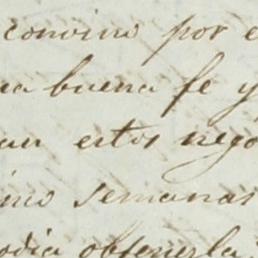 convino por e
na buena fe y
an estos nego
ino semanas
odia obtenerla